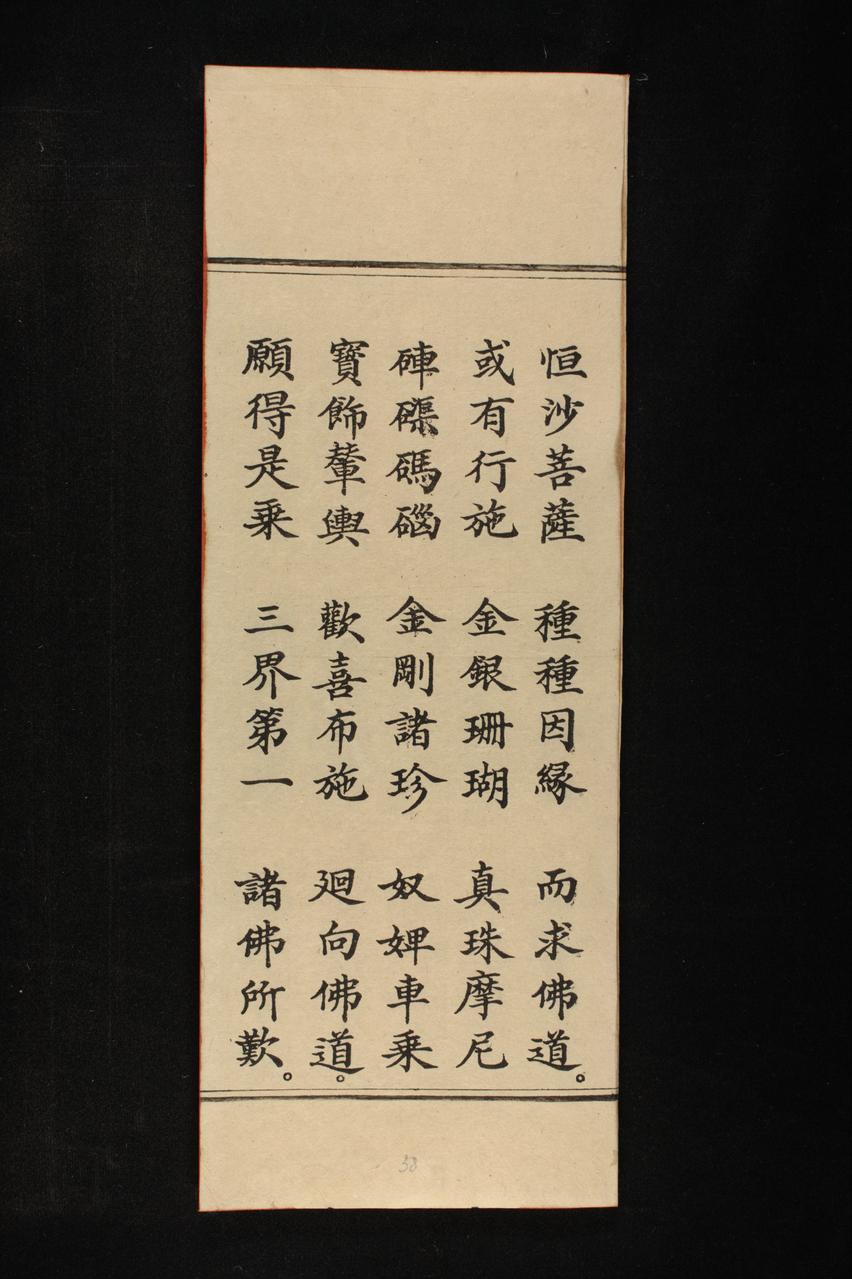 恒沙菩薩　種種因縁　而求佛道。
或有行施　金銀珊瑚　真珠摩尼
硨磲碼碯　金剛諸珍　奴婢車乗
寶飾輦輿　歡喜布施　廻向佛道。
願得是乗　三界第一　諸佛所歎。
38